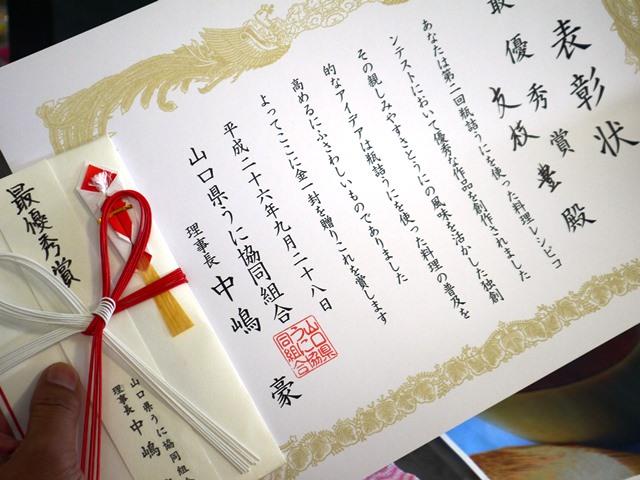 表彰状
最優秀賞
友枝豊殿
あなたは第二回瓶詰うにを使った料理レシピコ
ンテストにおいて優秀な作品を創作されました
その親しみやすさとうにの風味を活かした独創
的なアイデアは瓶詰うにを使った料理の普及を
高めるにふさわしいものでありました
よってここに金一封を贈りこれを賞します
平成二十六年九月二十八日
山口県うに協同組合
理事長 中嶋 豪
山口県
うに協
同組合
最優秀賞
山口県うに協同組合
理事長 中嶋